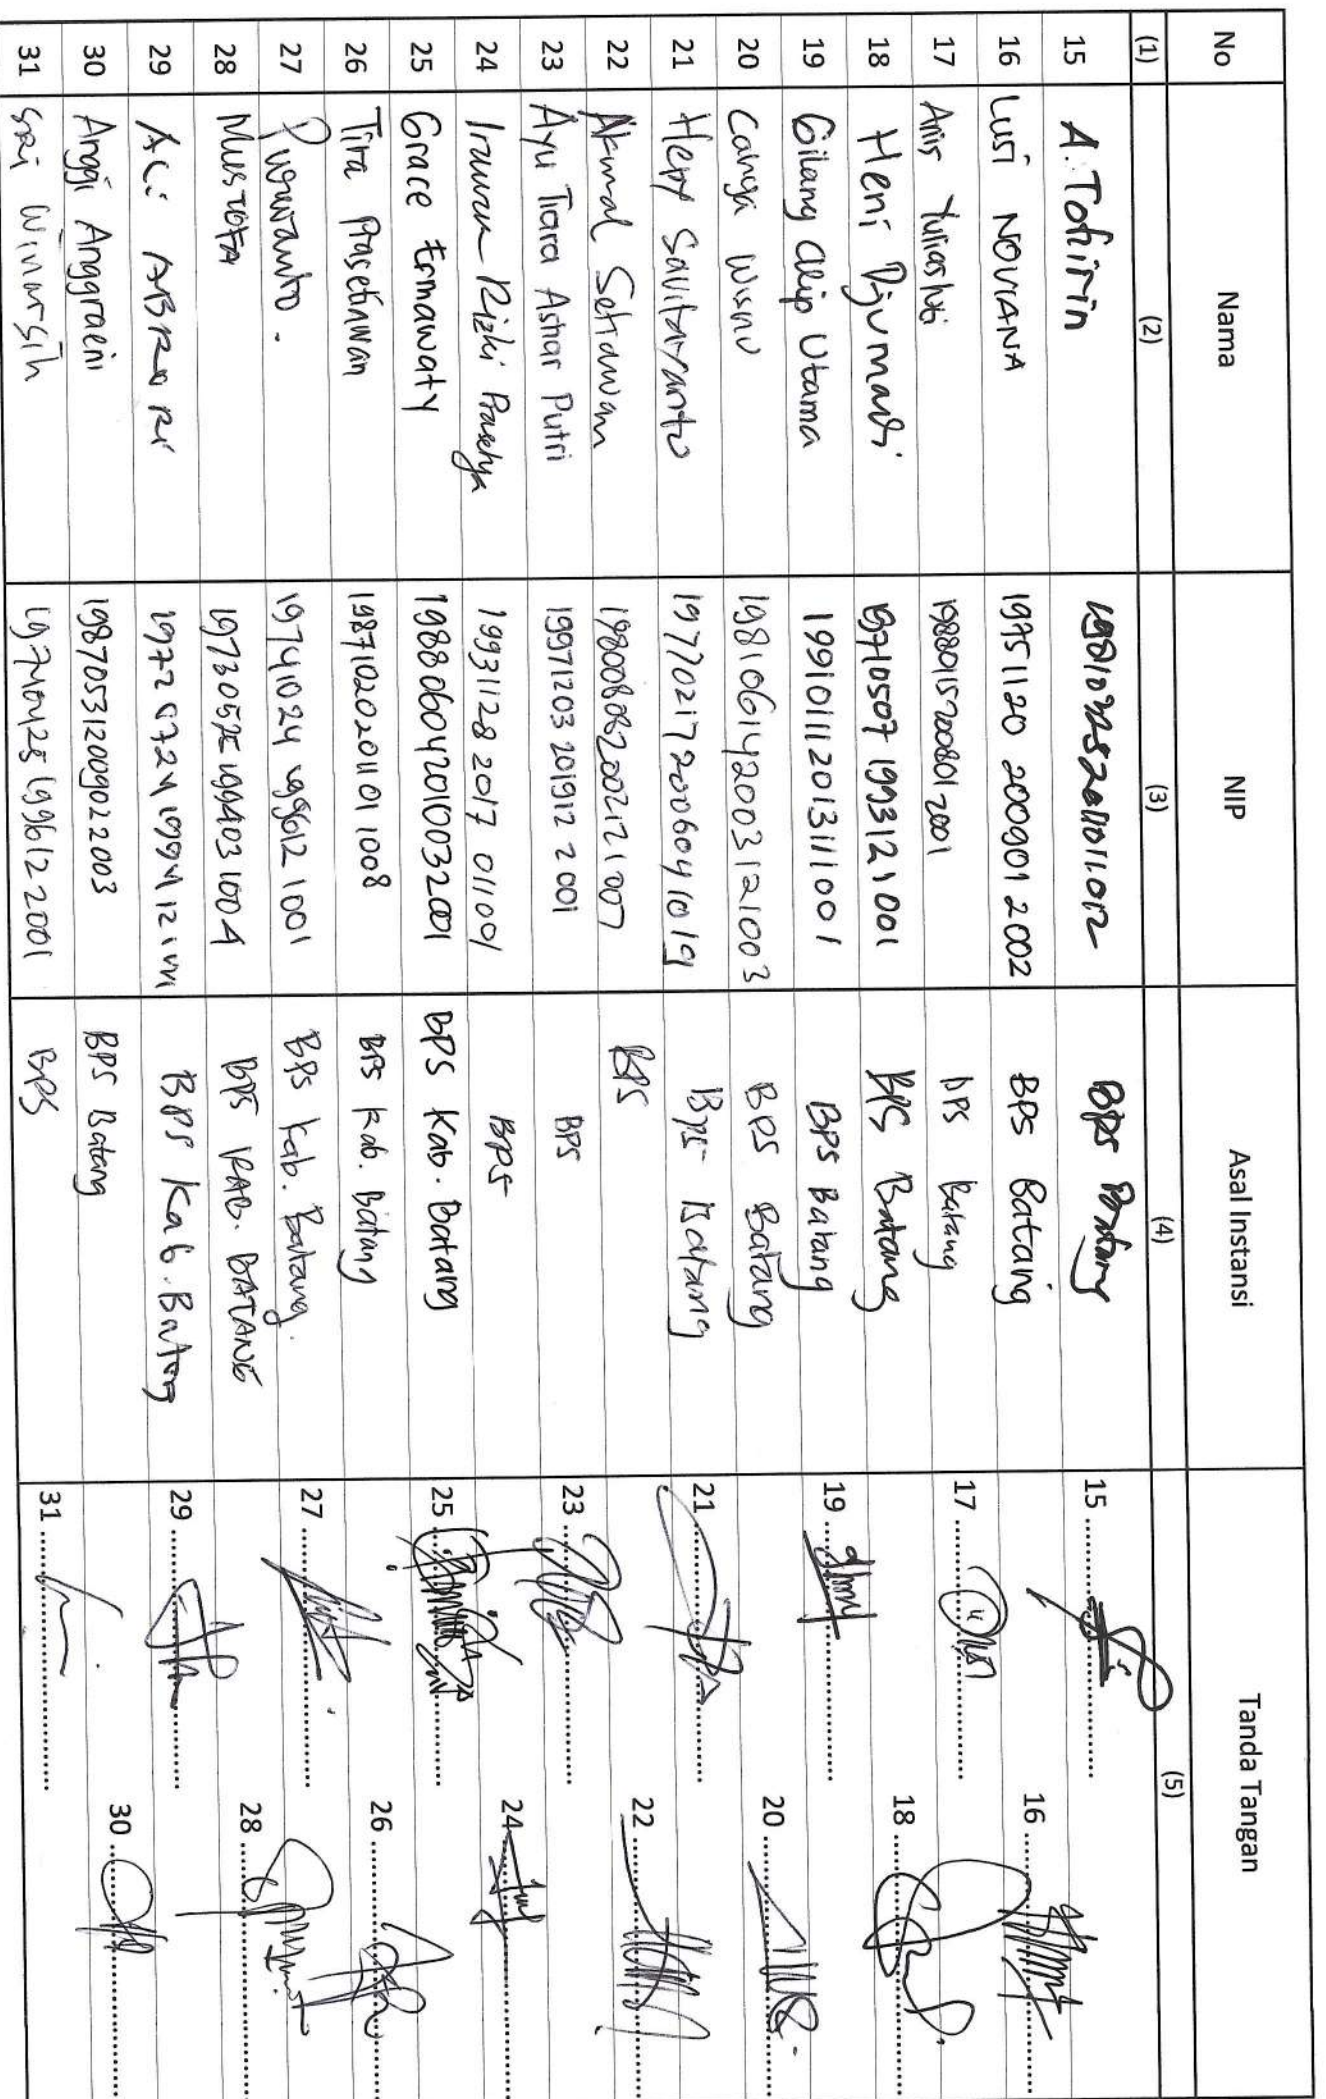 No Nama NIP Asal Instansi Tanda Tangan
(1) (2) (3) (4) (5)
15 A. Tofirin BPS Batang 15
16 Lusi NOVIANA 19751120 200901 2002 BPS Batang 16
17 Anis Yuliastuti 198801152008012001 BPS Batang 17
18 Heni Djumadi 19710507 199312 1 001 BPS Batang 18
19 Gilang Alip Utama 199101112013111001 BPS Batang 19
20 Cahya Wisnu 198106142003121003 BPS Batang 20
21 Hepy Savitayanto 197702172006041019 BPS Batang 21
22 Akmal Setiawan 198008082002121007 BPS 22
23 Ayu Tiara Ashar Putri 19971203 201912 2 001 BPS 23
24 Irawan Rizki Prasetya 19931128 2017 01 1001 BPS 24
25 Grace Ermawaty 198806042010032001 BPS Kab. Batang 25
26 Tira Prasetiawan 19871020201101 1008 BPS Kab. Batang 26
27 Purwanto. 19741024 199612 1001 BPS Kab. Batang. 27
28 MUSTOFA 19730525 199403 1004 BPS KAB. BATANG 28
29 ACI ABRORI BPS Kab. Batang 29
30 Anggi Anggraeni 198705312009022003 BPS Batang 30
31 Sri Winarsih 19740425 199612 2001 BPS 31